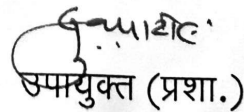 उपायुक्त (प्रशा.)